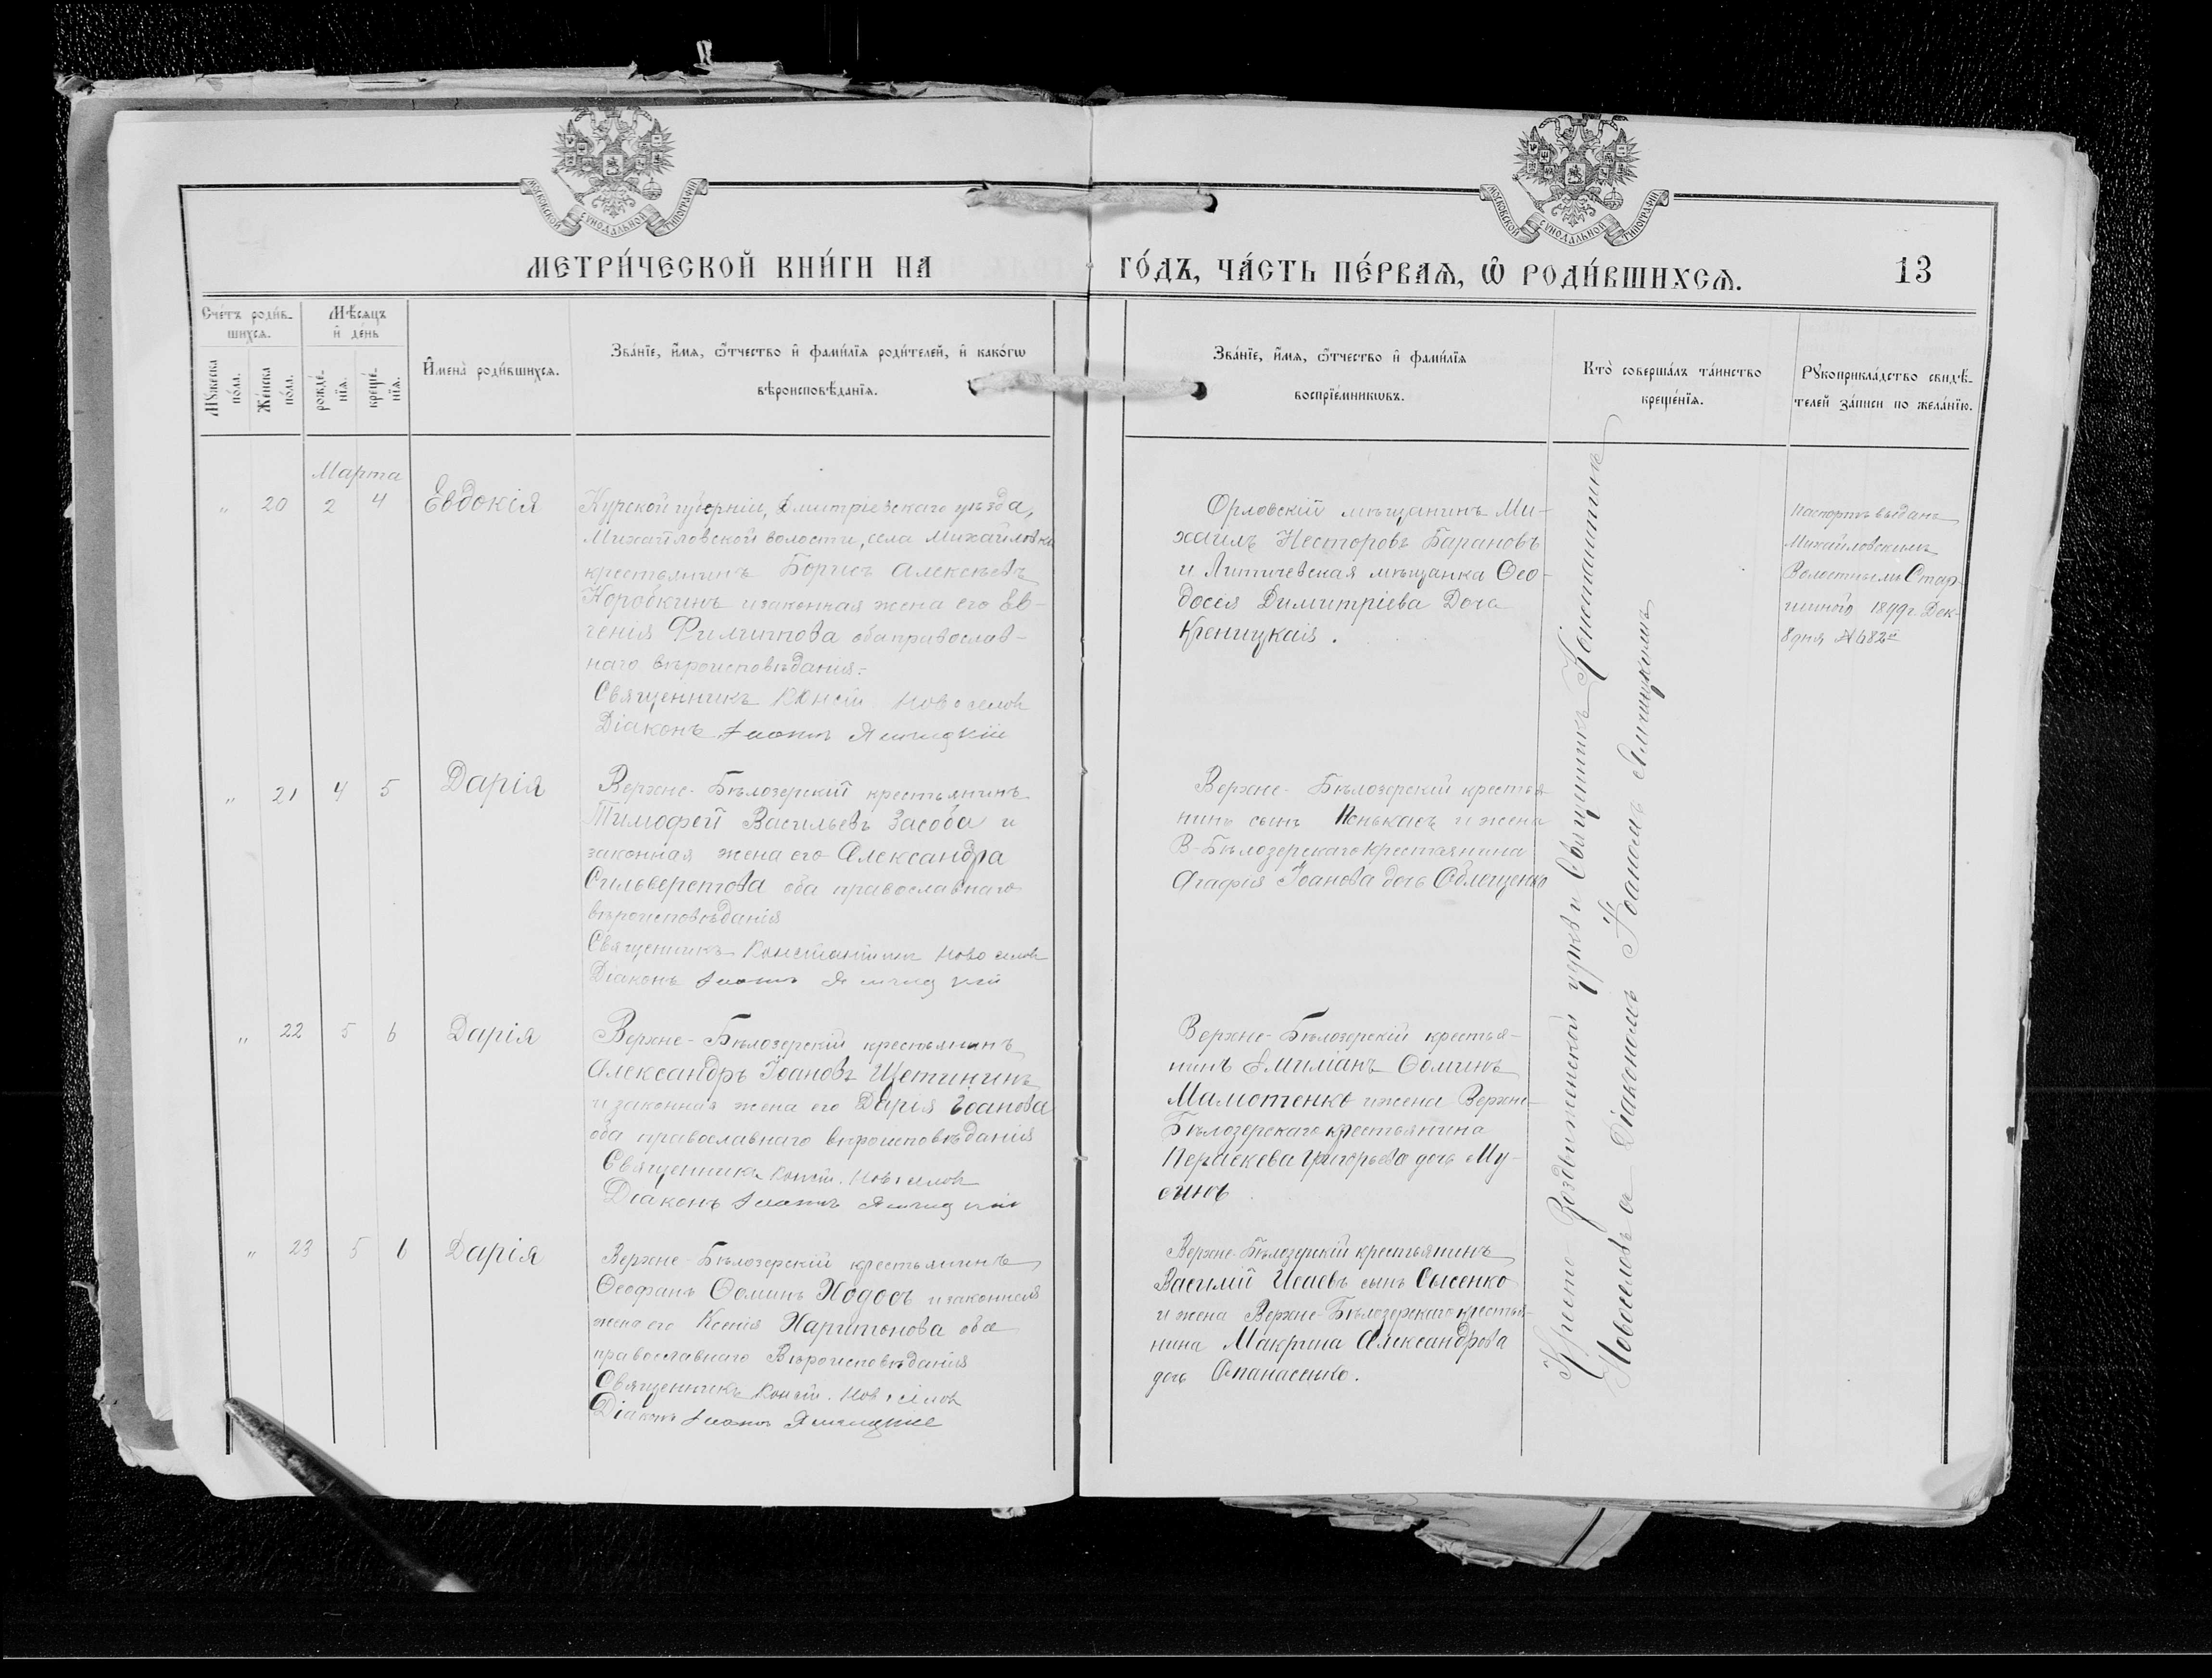 МОСКОВСКОЙ СѴНОДАЛЬНОЙ ТИПОГРАФІИ
МОСКОВСКОЙ СѴНОДАЛЬНОЙ ТИПОГРАФІИ
МЕТРИ́ЧЕСКОЙ КНИ́ГИ НА
ГО́ДЪ, ЧА́СТЬ ПЕ́РВАѦ, Ѿ РОДИ́ВШИХСѦ.
13
Сче́тъ роди́в-
шихсѧ.
Мꙋ́жеска по́ла.
Же́нска по́ла.
Мѣ́сѧцъ
и҆ де́нь
рожде́-
нїѧ.
креще́-
нїѧ.
И҆мена̀ роди́вшихсѧ.
Зва́нїе, и҆́мѧ, ѻ҆́тчество и҆ фами́лїѧ роди́телей, и҆ како́гѡ
вѣроисповѣ́данїѧ.
Зва́нїе, и҆́мѧ, ѻ҆́тчество и҆ фами́лїѧ
воспрїе́мникѡвъ.
Кто̀ соверша́лъ та́инство
креще́нїѧ.
Рꙋкоприкла́дство свидѣ́-
телей за́писи по жела́нїю.
Марта
" 20 2 4 Евдокія
Курской губерніи, Дмитріевскаго уѣзда,
Михайловской волости, села Михайловки
крестьянинъ Борисъ Алексѣевъ
Коробкинъ и законная жена его Ев-
генія Филиппова оба православ-
наго вѣроисповѣданія.
Священникъ Конст. Новоселов
Діаконъ Іоаннъ
Орловскій мѣщанинъ Ми-
хаилъ Несторовъ Барановъ
и Литичевская мѣщанка Ѳео-
досія Димитріева Дочь
Креницкая.
Паспортъ выданъ
Михайловскимъ
Волостнымъ Стар-
шиною 1899г. Дек-
8 дня № 682
" 21 4 5 Дарія
Верхне-Бѣлозерскій крестьянинъ
Тимофей Васильевъ Засоба и
законная жена его Александра
Сильверстова оба православнаго
вѣроисповѣданія
Священникъ Константин Новоселов
Діаконъ Іоаннъ
Верхне-Бѣлозерскій крестья-
нинъ сынъ и жена
В-Бѣлозерскаго крестьянина
Агафія Іоанова дочь
" 22 5 6 Дарія
Верхне-Бѣлозерскій крестьянинъ
Александръ Іоановъ Щетининъ
и законная жена его Дарія Іоанова
оба православнаго вѣроисповѣданія
Священникъ Конст. Новоселов
Діаконъ Іоаннъ
Верхне-Бѣлозерскій крестья-
нинъ Емиліанъ Ѳоминъ
Мамотенко и жена Верхне-
Бѣлозерскаго крестьянина
Параскева Григорьева дочь Му-
" 23 5 6 Дарія
Верхне-Бѣлозерскій крестьянинъ
Ѳеофанъ Ѳоминъ Ходосъ и законная
жена его Ксенія Харитонова оба
православнаго Вѣроисповѣданія
Священникъ Конст. Новоселов
Діаконъ Іоаннъ
Верхне-Бѣлозерскій крестьянинъ
Василій Исаевъ сынъ Сысенко
и жена Верхне-Бѣлозерскаго крестья-
нина Макрина Александрова
дочь Опанасенко.
Кресто Воздвиженской церкви Священникъ Константинъ
Новоселовъ а Діакономъ Іоаномъ